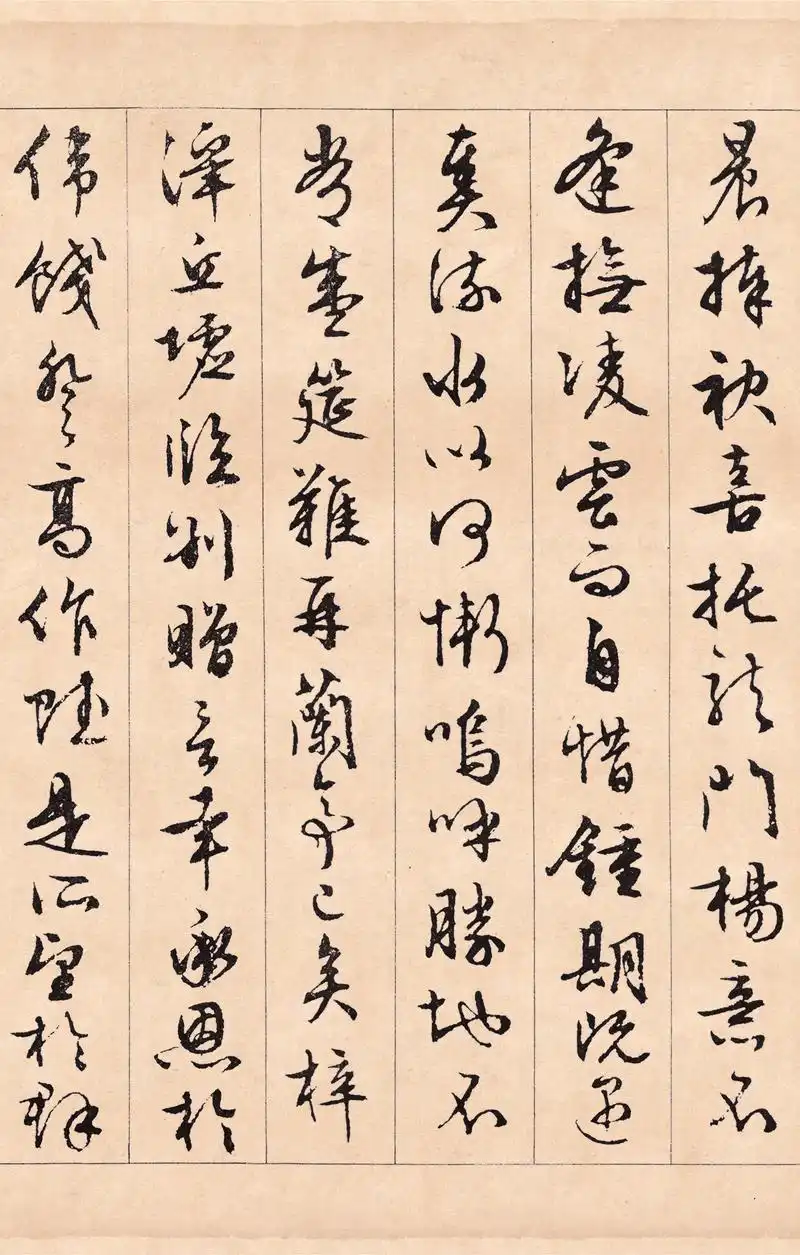 晨捧袂喜托龍門楊意不
逢撫凌雲而自惜鍾期既遇
奏流水以何慚嗚呼勝地不
常盛筵難再蘭亭已矣梓
澤丘墟臨別贈言幸承恩於
偉餞登高作賦是所望於群